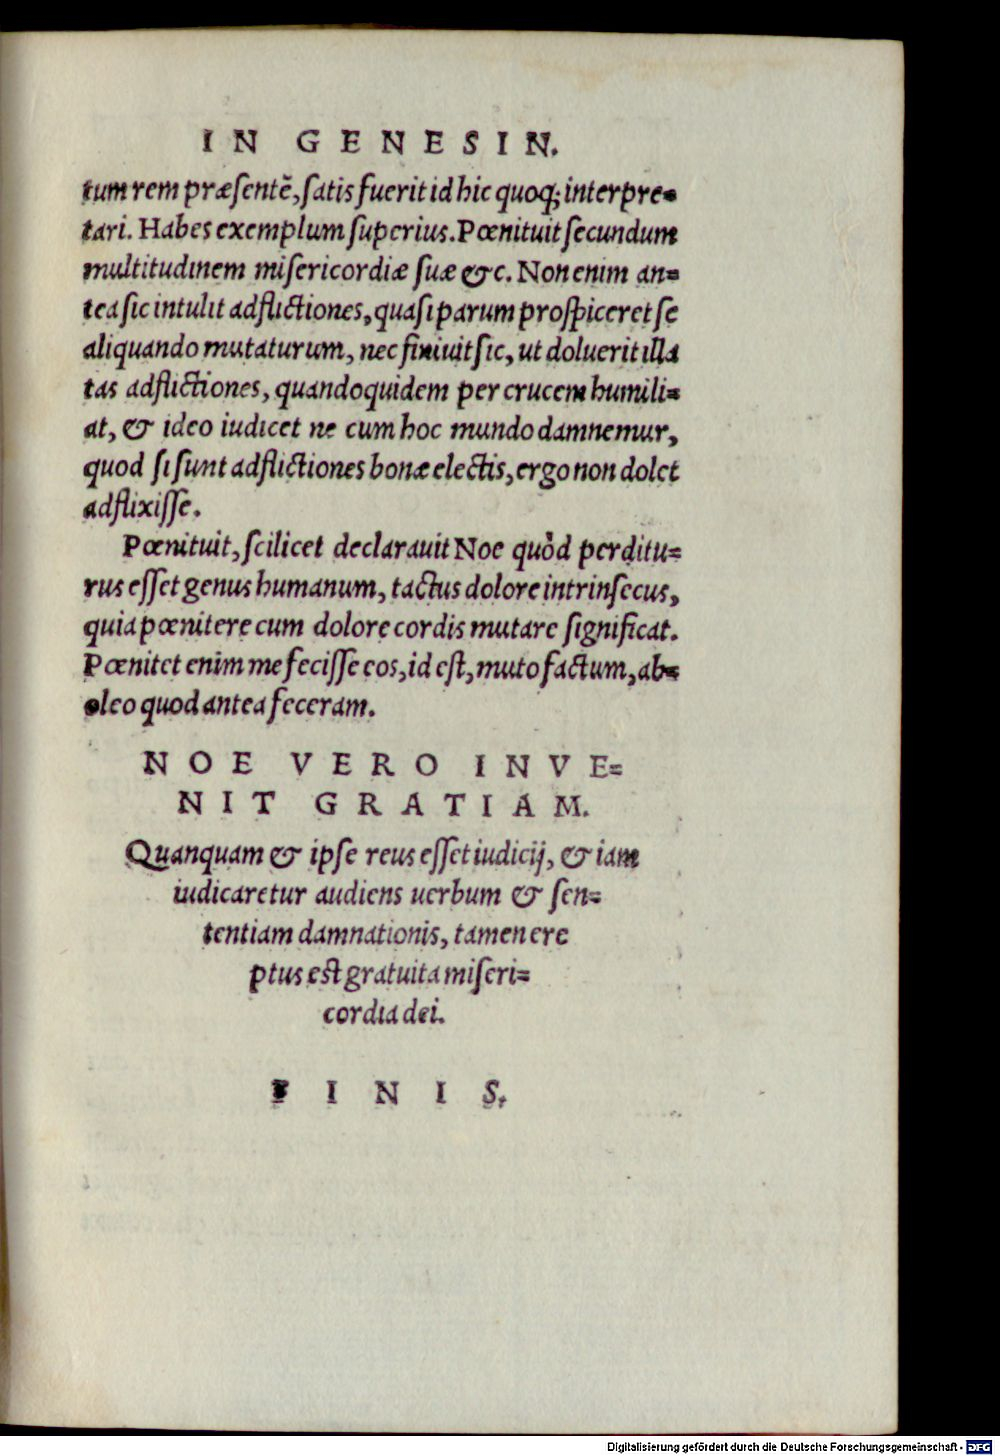 IN GENESIN.
tum rem præsentē, satis fuerit id hic quoq; interpre=
tari. Habes exemplum superius. Pœnituit secundum
multitudinem misericordiæ suæ &c. Non enim an=
tea sic intulit adflictiones, quasi parum prospiceret se
aliquando mutaturum, nec finiuit sic, ut doluerit illa
tas adflictiones, quandoquidem per crucem humili=
at, & ideo iudicet ne cum hoc mundo damnemur,
quod si sunt adflictiones bonæ electis, ergo non dolet
adflixisse.
Pœnituit, scilicet declarauit Noe quòd perditu=
rus esset genus humanum, tactus dolore intrinsecus,
quia pœnitere cum dolore cordis mutare significat.
Pœnitet enim me fecisse eos, id est, muto factum, ab=
oleo quod antea feceram.
NOE VERO INVE=
NIT GRATIAM.
Quanquam & ipse reus esset iudicij, & iam
iudicaretur audiens uerbum & sen=
tentiam damnationis, tamen ere
ptus est gratuita miseri=
cordia dei.
FINIS.
Digitalisierung gefördert durch die Deutsche Forschungsgemeinschaft - DFG